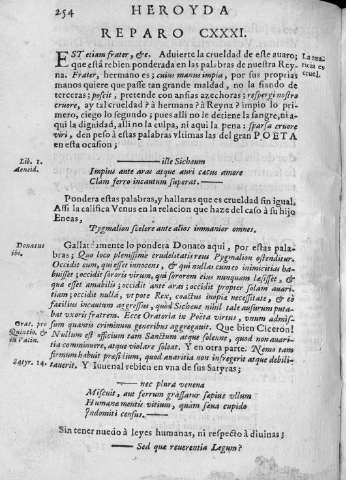 254 HEROYDA
REPARO CXXXI.
EST etiam frater, &c. Aduierte la crueldad de este auaro;
que està rebien ponderada en las palabras de nuestra Rey-
na. Frater, hermano es; cuius manus impia, por sus proprias
manos quiere que passe tan grande maldad, no la fiando de
terceras; poscit, pretende con ansias atrozes; respergi nostro
cruore, ay tal crueldad? à hermana? à Reyna? impio lo pri-
mero, ciego lo segundo; pues alli no le deciene la sangre, ni a-
qui la dignidad, alli no la culpa, ni aqui la pena: sparsa cruore
viri, den peso à estas palabras vltimas las del gran POETA
en esta ocasion;
Lib. 1.
Aeneid.
ille Sichæum
Impius ante aras atque auri cæcus amore
Clam ferro incautum superat.
Pondera estas palabras, y hallaras que es crueldad sin igual.
Assi la califica Venus en la relacion que haze del caso à su hijo
Eneas,
Pygmalion scelere ante alios immanior omnes.
Donatus
ibi.
Gallardamente lo pondera Donato aqui, por estas pala-
bras; Quo loco plenissime crudelitatis reus Pygmalion ostenditur.
Occidit eum, qui esset innocens, & qui nullas cum eo inimicitias ha-
buisset; occidit sororis virum, qui sororem eius nunquam læsisset, &
qua esset amabilis; occidit ante aras; occidit propter solam auari-
tiam; occidit nulla, vt pote Rex, coactus inopia necessitate, & eò
facilius incautum aggressus, quòd Sichæus nihil tale asuturum puta-
bat vxoris fratrem. Ecce Oratoria in Poeta virtus, vnum admis-
sum quauis criminum generibus aggrauauit. Que bien Ciceron!
Nullum est officium tam Sanctum atque solenne, quod non auari-
tia comminuere, atque violare soleat. Y en otra parte. Nemo tam
firmum habuit præsidium, quod auaritia non infregerit atque debili-
tauerit. Y Iuuenal rebien en vna de sus Satyras;
Satyr. 14.
nec plura venena
Miscuit, aut ferrum grassatur sæpius vllum
Humanæ mentis vitium, quàm sæua cupido
Indomiti census.
Sin tener miedo à leyes humanas, ni respecto à diuinas;
Sed quæ reuerentia Legum?